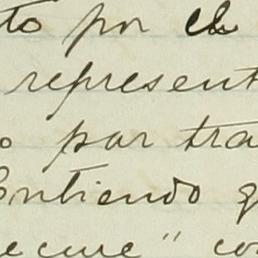 to por el
represent
o par tra
Entiendo q
ecure" co